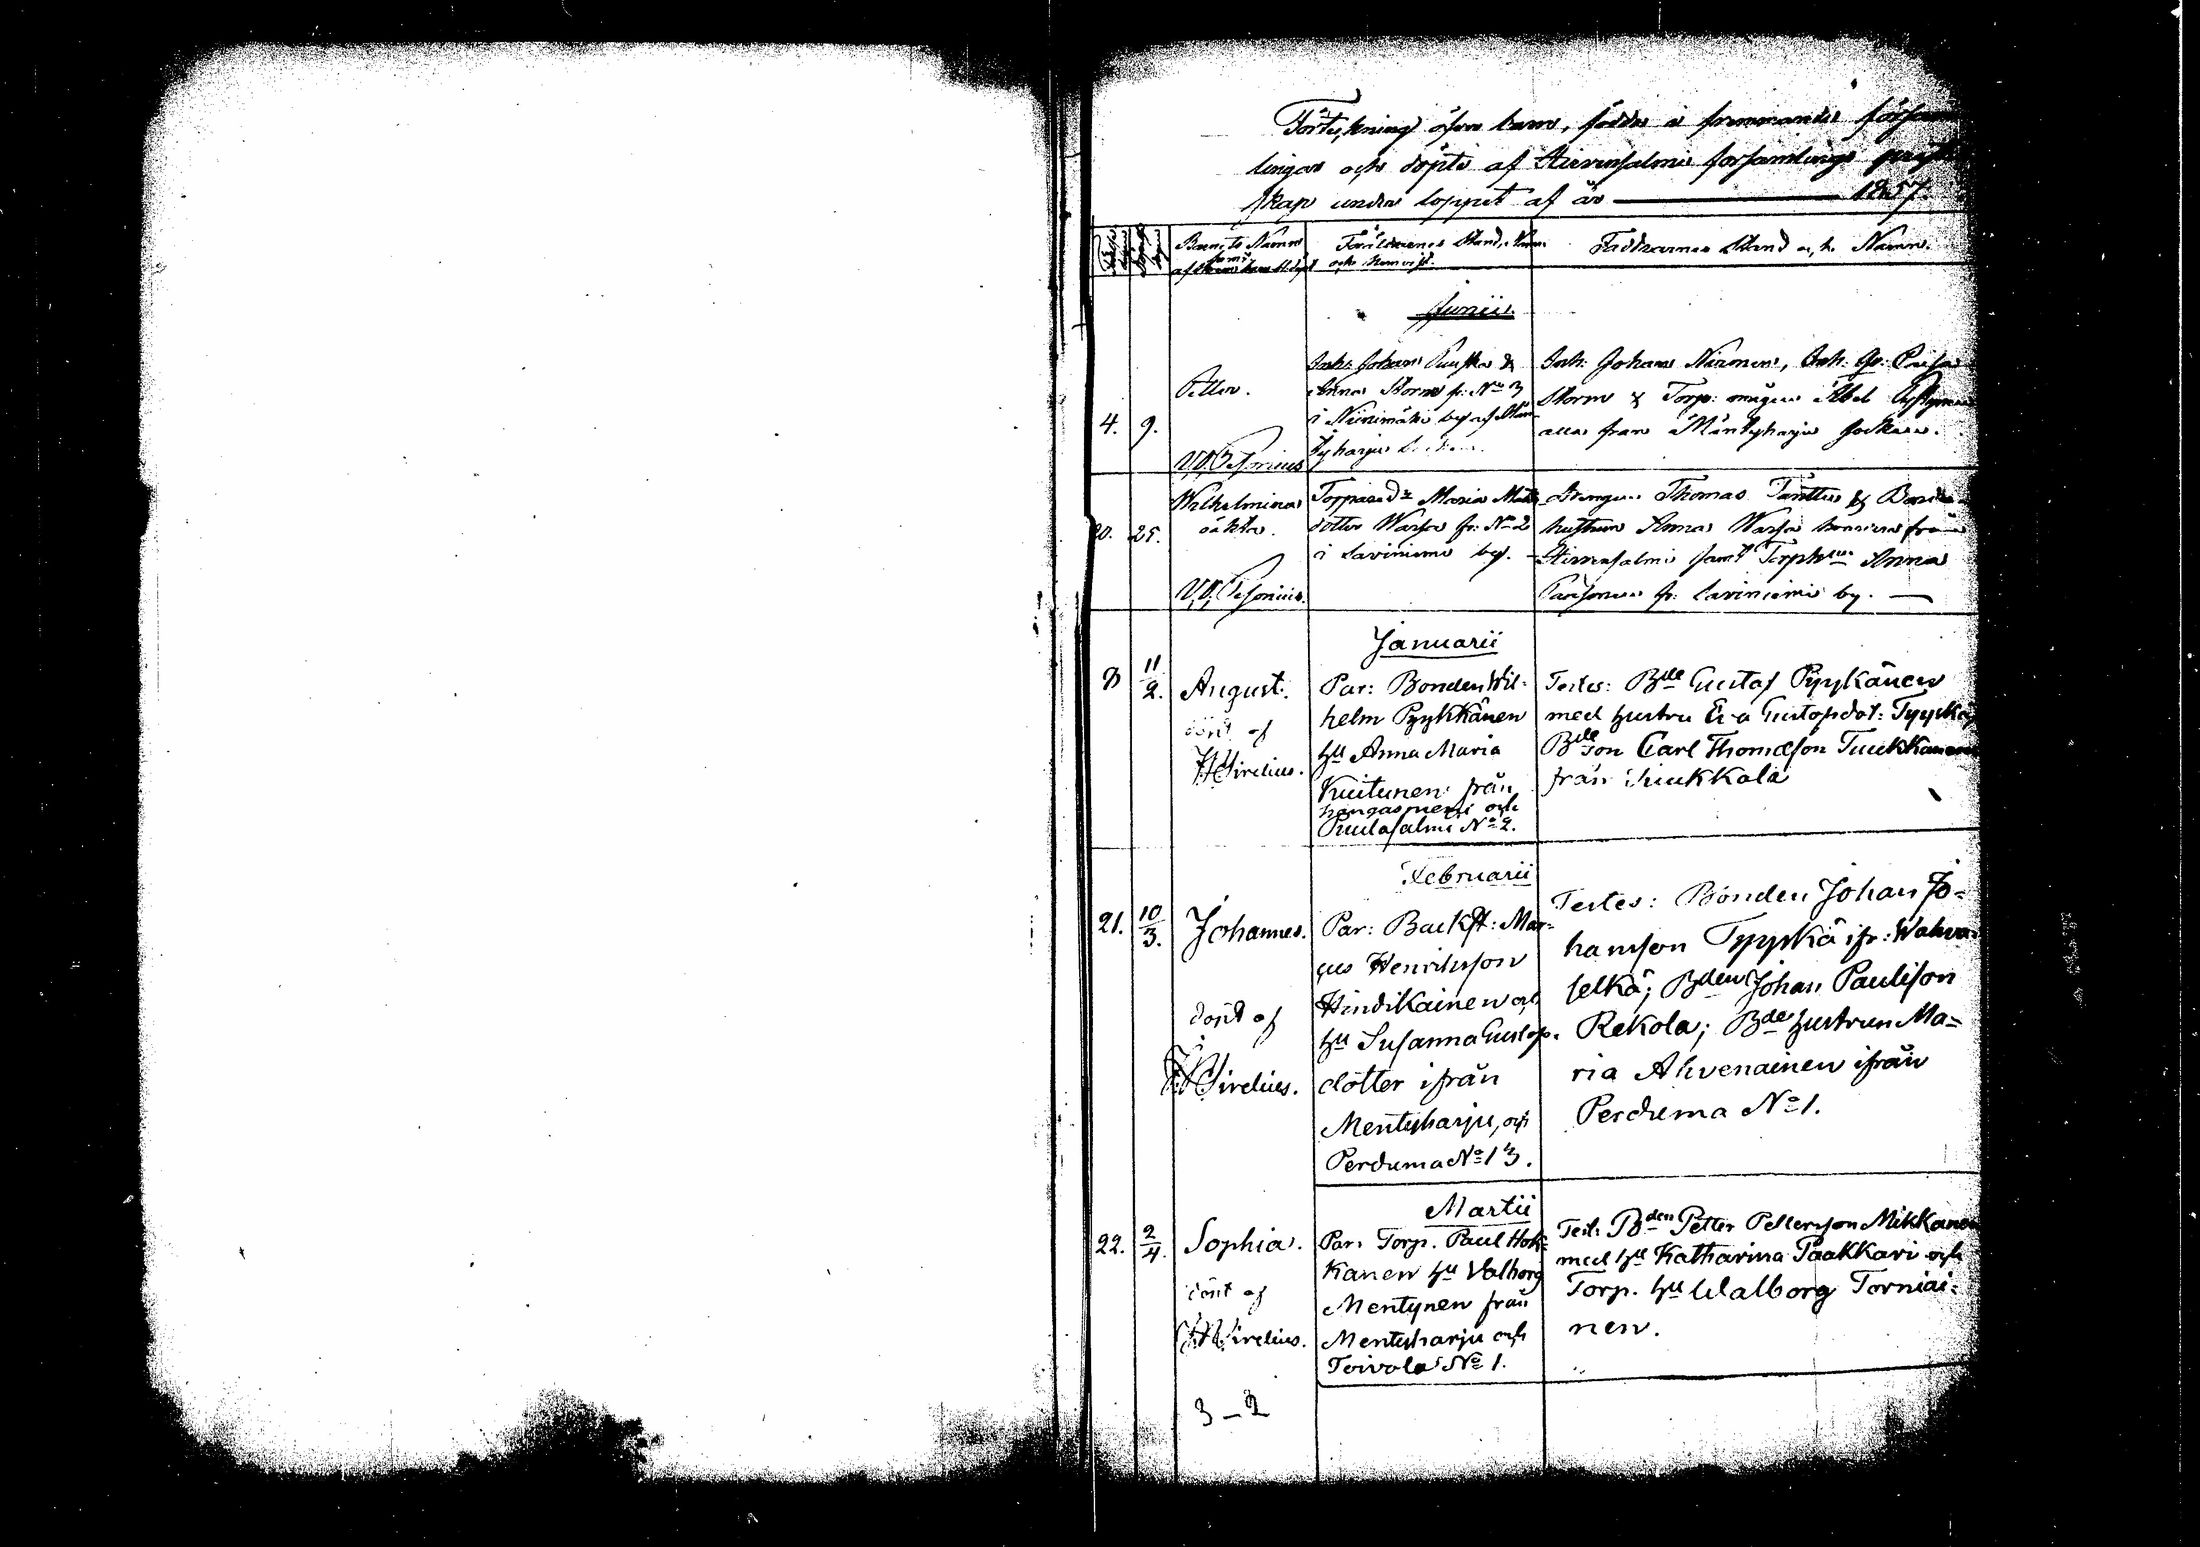 Förteckning öfver barn, födda i fremmande försam
lingar och döpte af Hirvensalmi församlings prest
skap under loppet af år 1857.
Barnets Namn
Föräldrarnes Stånd, Namn
och Hemvist.
Faddrarnes Stånd och Namn.
Junii.
4. 9.
Petter.
Inh: Johan &
Anna Storm fr: No 3
i Niinimäki by af Män
tyharju
Inh: Johan Nironen, Inh:
Storm & Torp: mågen Abel
alla från Mäntyharju Socken.
20. 25.
Wilhelmina
oäkta.
Torpared: Maria Matts
dotter Warsa fr: No 2
i Laviniemi by.
Drengen Thomas Tanttu & Bonde
hustrun Anna Warsa från
Hirvensalmi samt Anna
fr: Laviniemi by.
Januarii
8 11/2.
August.
döpt af
Hirelius.
Par: Bonden Wil-
helm Pyykkänen
hu Anna Maria
Kuitunen från
hangasniemi och
Puulasalmi No 2.
Testes: Bde Gustaf Pyykänen
med hustru Eva Gustafsdot: Tyyskä
Bde son Carl Thomasson Tuukkanen
från Tuukkala
Februarii
21. 10/3.
Johannes.
döpt af
Hirelius.
Par: Backst: Mar-
cus Henriksson
Hindikainen och
hu Susanna Gustafs-
dotter ifrån
Mentyharju, och
Perduma No 13.
Testes: Bonden Johan Jo-
hansson Tyyskä ifr: Wahva-
selkä; Bden Johan Paulsson
Rekola; Bde hustrun Ma-
ria Ahvenainen ifrån
Perduma No 1.
Martii
22. 2/4.
Sophia.
döpt af
Hirelius.
Par: Torp. Paul Hok-
kanen hu Valborg
Mentynen från
Mentyharju och
Toivola No 1.
Test: Bden Petter Pettersson Mikkanen
med hu Katharina Paakkari och
Torp. hu Walborg Torniai-
nen.
3 - 2